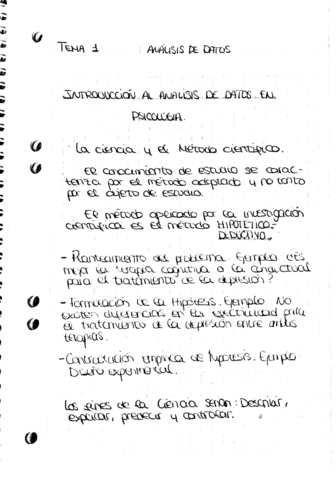 TEMA 1 ANALISIS DE DATOS
INTRODUCCIÓN AL ANALISIS DE DATOS EN
PSICOLOGIA.
La ciencia y el Método científico.
El conocimiento de estudio se carac-
teriza por el método adoptado y no tanto
por el objeto de estudio.
El método aplicado por la investigación
científica es el método HIPOTETICO-
DEDUCTIVO.
- Planteamiento del problema. Ejemplo ¿Es
mejor la terapia cognitiva o la conductual
para el tratamiento de la depresión?
- Formulación de la Hipótesis. Ejemplo No
existen diferencias en la efectividad para
el tratamiento de la depresión entre ambas
terapias.
- Contrastación empírica de hipotesis. Ejemplo
Diseño experimental.
Los fines de la Ciencia serían: Describir,
explicar, predecir y controlar.